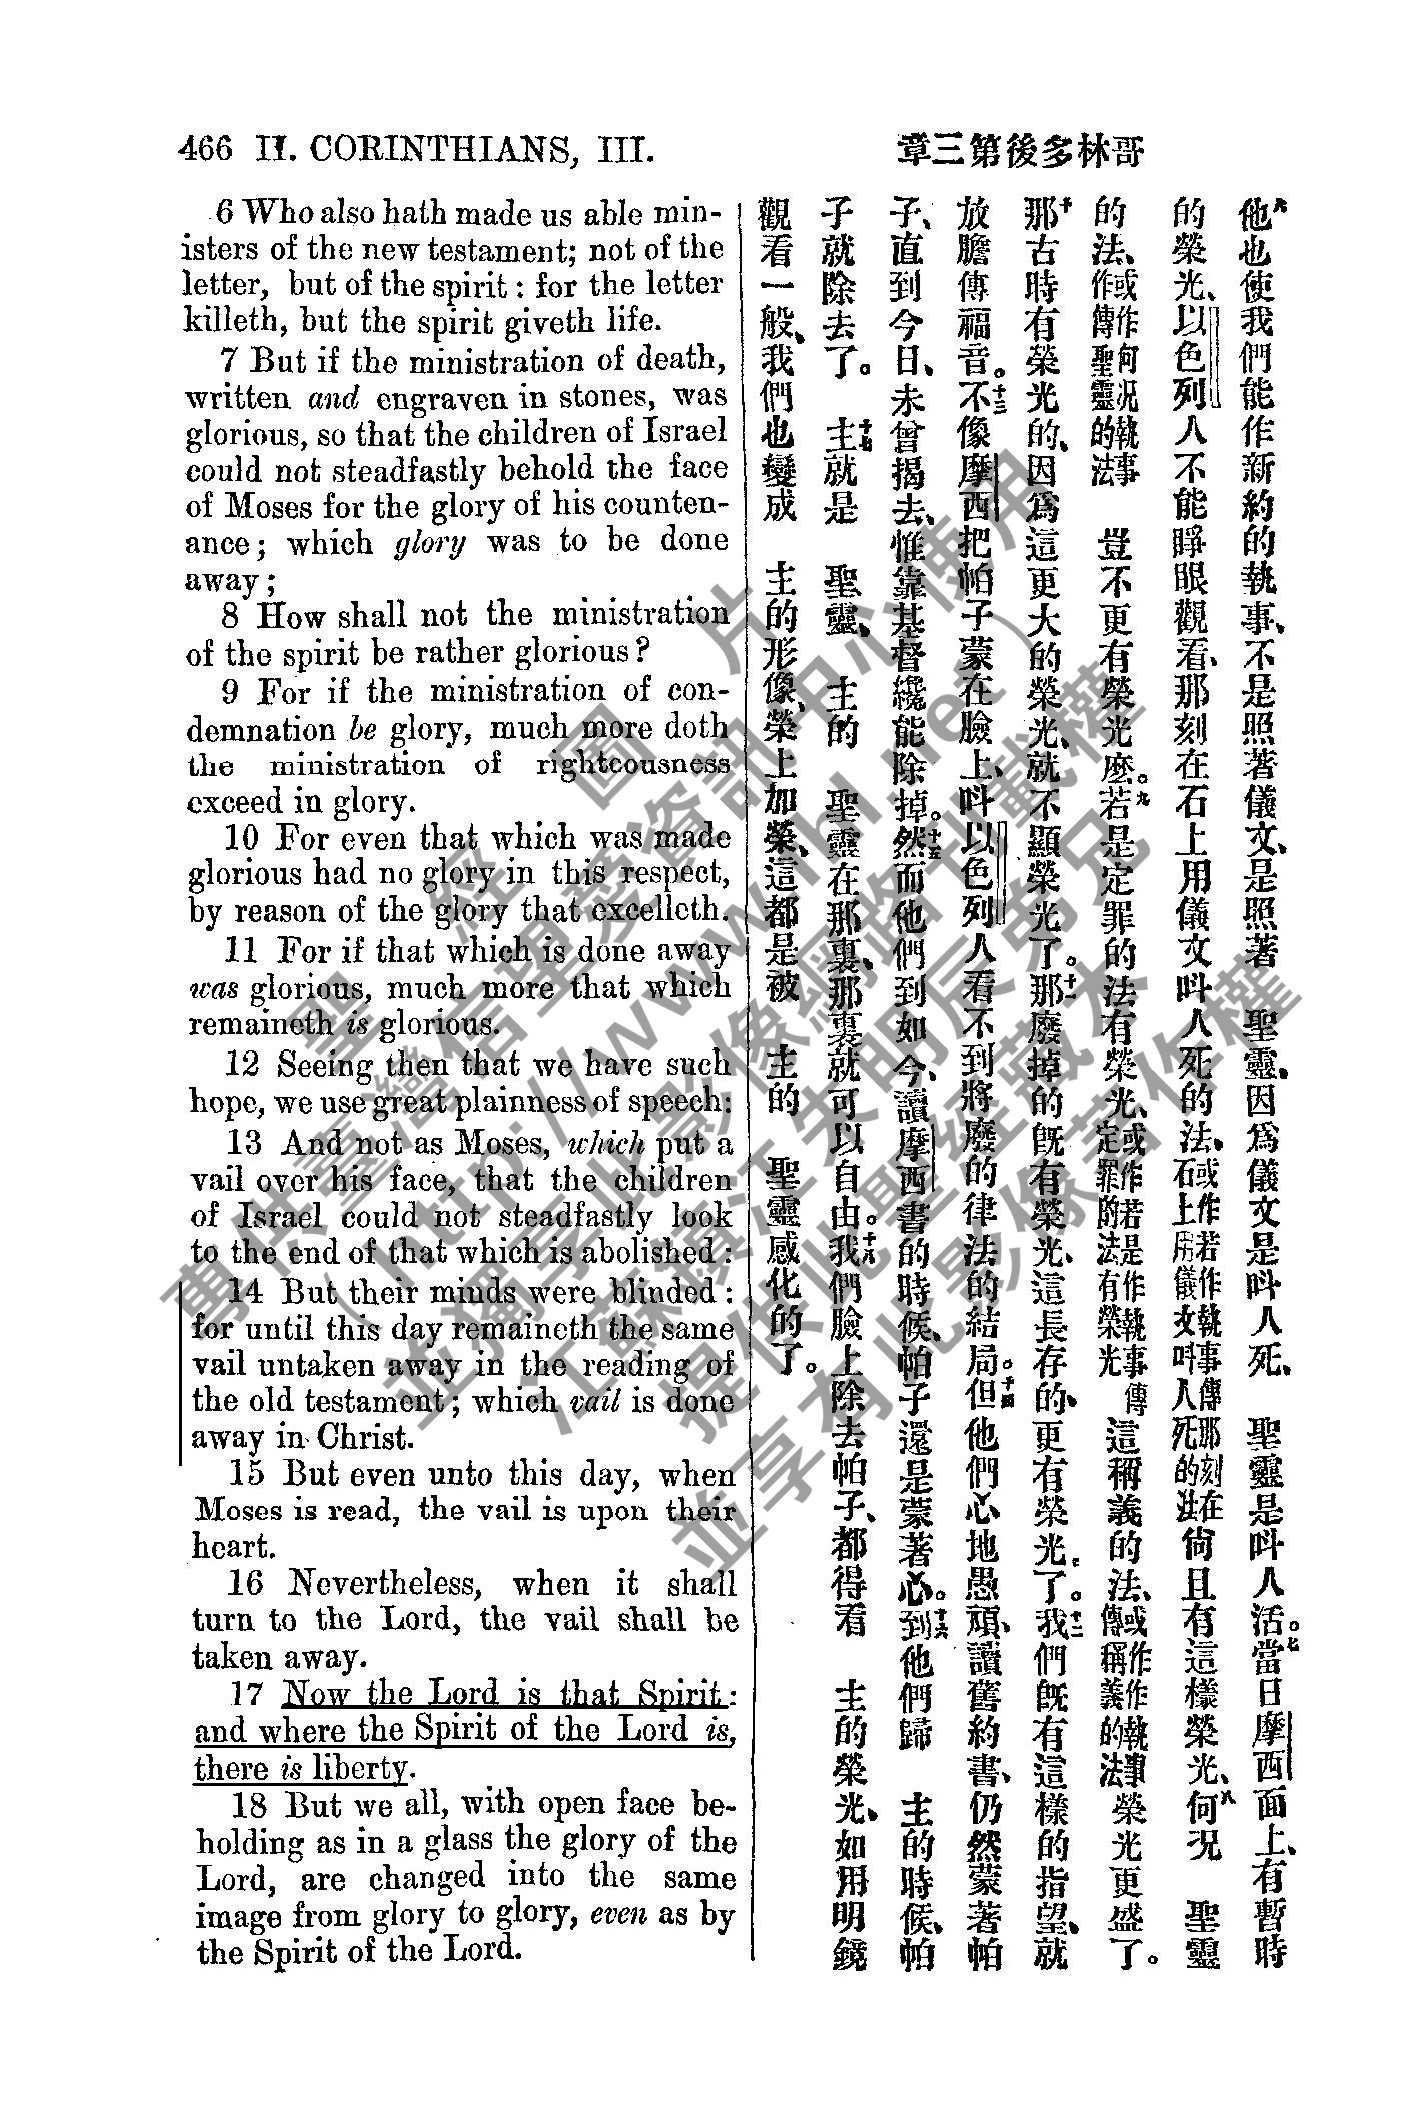 466 II. CORINTHIANS, III.
哥林多後第三章
6 Who also hath made us able min-
isters of the new testament; not of the
letter, but of the spirit: for the letter
killeth, but the spirit giveth life.
7 But if the ministration of death,
written and engraven in stones, was
glorious, so that the children of Israel
could not steadfastly behold the face
of Moses for the glory of his counten-
ance; which glory was to be done
away;
8 How shall not the ministration
of the spirit be rather glorious?
9 For if the ministration of con-
demnation be glory, much more doth
the ministration of righteousness
exceed in glory.
10 For even that which was made
glorious had no glory in this respect,
by reason of the glory that excelleth.
11 For if that which is done away
was glorious, much more that which
remaineth is glorious.
12 Seeing then that we have such
hope, we use great plainness of speech:
13 And not as Moses, which put a
vail over his face, that the children
of Israel could not steadfastly look
to the end of that which is abolished:
14 But their minds were blinded:
for until this day remaineth the same
vail untaken away in the reading of
the old testament; which vail is done
away in Christ.
15 But even unto this day, when
Moses is read, the vail is upon their
heart.
16 Nevertheless, when it shall
turn to the Lord, the vail shall be
taken away.
17 Now the Lord is that Spirit:
and where the Spirit of the Lord is,
there is liberty.
18 But we all, with open face be-
holding as in a glass the glory of the
Lord, are changed into the same
image from glory to glory, even as by
the Spirit of the Lord.
六他也使我們能作新約的執事、不是照著儀文、是照著 聖靈、因爲儀文是呌人死、 聖靈是呌人活。七當日摩西面上、有暫時
的榮光、以色列人不能睜眼觀看、那刻在石上用儀文呌人死的法、或作若作執事傳那刻在石上用儀文呌人死的法尙且有這樣榮光、八何况 聖靈
的法、或作何况執事作傳聖靈的法 豈不更有榮光麼。九若是定罪的法有榮光、或作若是作執事傳定罪的法有榮光 這稱義的法、或作作執事傳稱義的法 榮光更盛了。
十那古時有榮光的、因爲這更大的榮光、就不顯榮光了。十一那廢掉的旣有榮光、這長存的、更有榮光了。十二我們旣有這樣的指望、就
放膽傳福音。十三不像摩西把帕子蒙在臉上、呌以色列人看不到將廢的律法的結局。十四但他們心地愚頑、讀舊約書、仍然蒙著帕
子、直到今日、未曾揭去、惟靠基督纔能除掉。十五然而他們到如今、讀摩西書的時候、帕子還是蒙著心。十六到他們歸 主的時候、帕
子就除去了。 十七主就是 聖靈、 主的 聖靈在那裏、那裏就可以自由。十八我們臉上除去帕子、都得看 主的榮光、如用明鏡
觀看一般、我們也變成 主的形像、榮上加榮、這都是被 主的 聖靈感化的了。